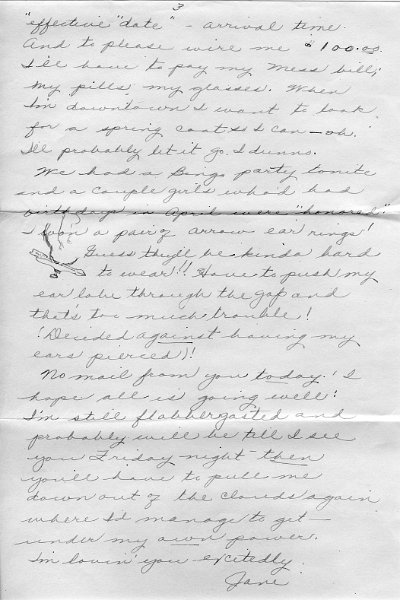 3
"effective "date" - arrival time.
And to please wire me $100.00
I'll have to pay my mess bill,
my pills, my glasses. When
I'm downtown I want to look
for a spring coat so I can - oh,
I'll probably let it go. I dunno.
We had a Bingo party tonite
and a couple girls who'd had
birthdays in April were "honored."
I won a pair of arrow ear rings!
Guess they'll be kinda hard
to wear!! Have to push my
ear lobe through the gap and
thats too much trouble!
(Decided against having my
ears pierced)!
No mail from you today. I
hope all is going well!
I'm still flabbergasted and
probably will be till I see
you Friday night - then
you'll have to pull me
down out of the clouds again
where I'd manage to get -
under my own power.
I'm lovin' you excitedly
Jane